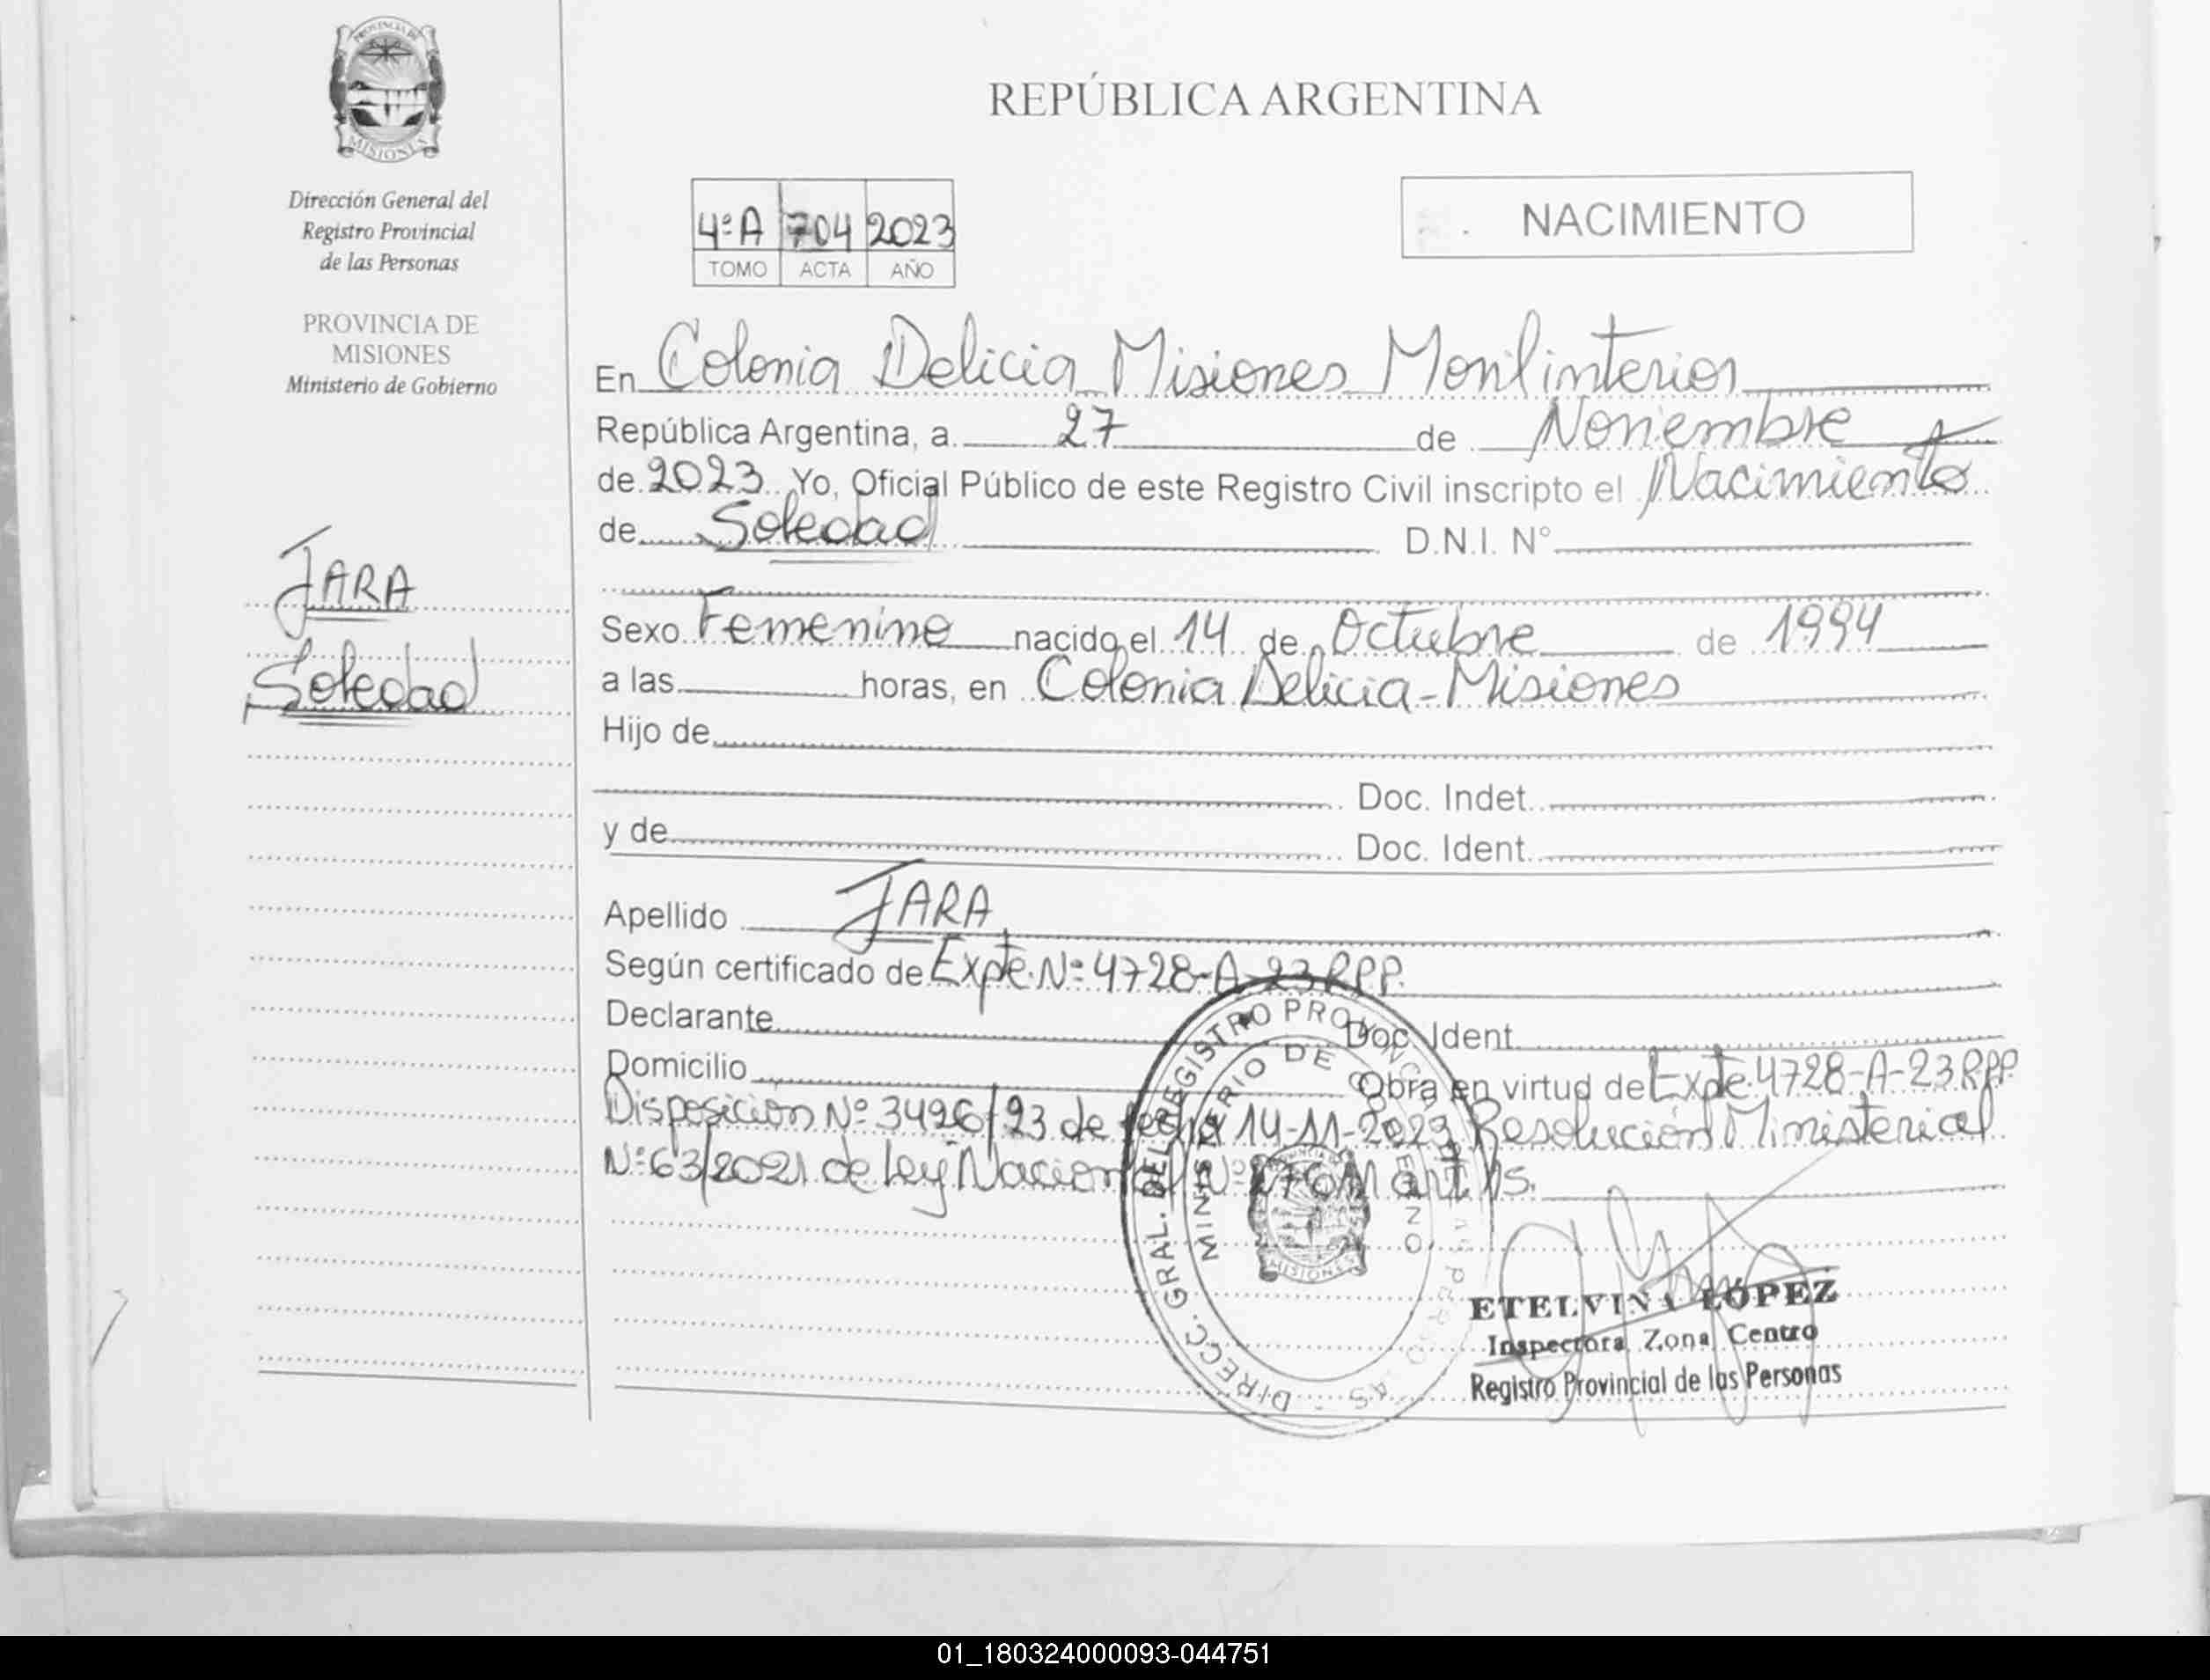 PROVINCIA DE
MISIONES
Dirección General del
Registro Provincial
de las Personas
PROVINCIA DE
MISIONES
Ministerio de Gobierno
JARA
Soledad
REPÚBLICA ARGENTINA
4ºA 704 2023
TOMO ACTA AÑO
NACIMIENTO
En Colonia Delicia Misiones
República Argentina, a 27 de Noviembre
de 2023 Yo, Oficial Público de este Registro Civil inscripto el Nacimiento
de Soledad D.N.I. Nº
Sexo Femenino nacido el 14 de Octubre de 1994
a las horas, en Colonia Delicia - Misiones
Hijo de
Doc. Indet.
y de Doc. Ident.
Apellido JARA
Según certificado de Expte. Nº 4728-A-23 RPP.
Declarante Doc. Ident.
Domicilio Obra en virtud de Expte. 4728-A-23 RPP
Disposición Nº 3496/23 de fecha 14-11-2023 Resolución Ministerial
Nº 63/2021 de Ley Nacional Nº art.
DIRECC. GRAL. DEL REGISTRO PROVINCIAL
MINISTERIO DE GOBIERNO
MISIONES
ETELVINA LÓPEZ
Inspectora Zona Centro
Registro Provincial de las Personas
01_180324000093-044751